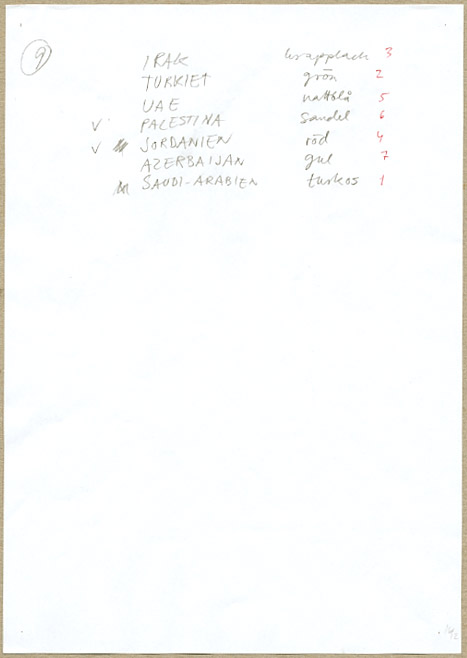 9
IRAK krapplack 3
TURKIET grön 2
UAE nattblå 5
✓ PALESTINA sandel 6
✓ JORDANIEN röd 4
AZERBAIJAN gul 7
SAUDI-ARABIEN turkos 1